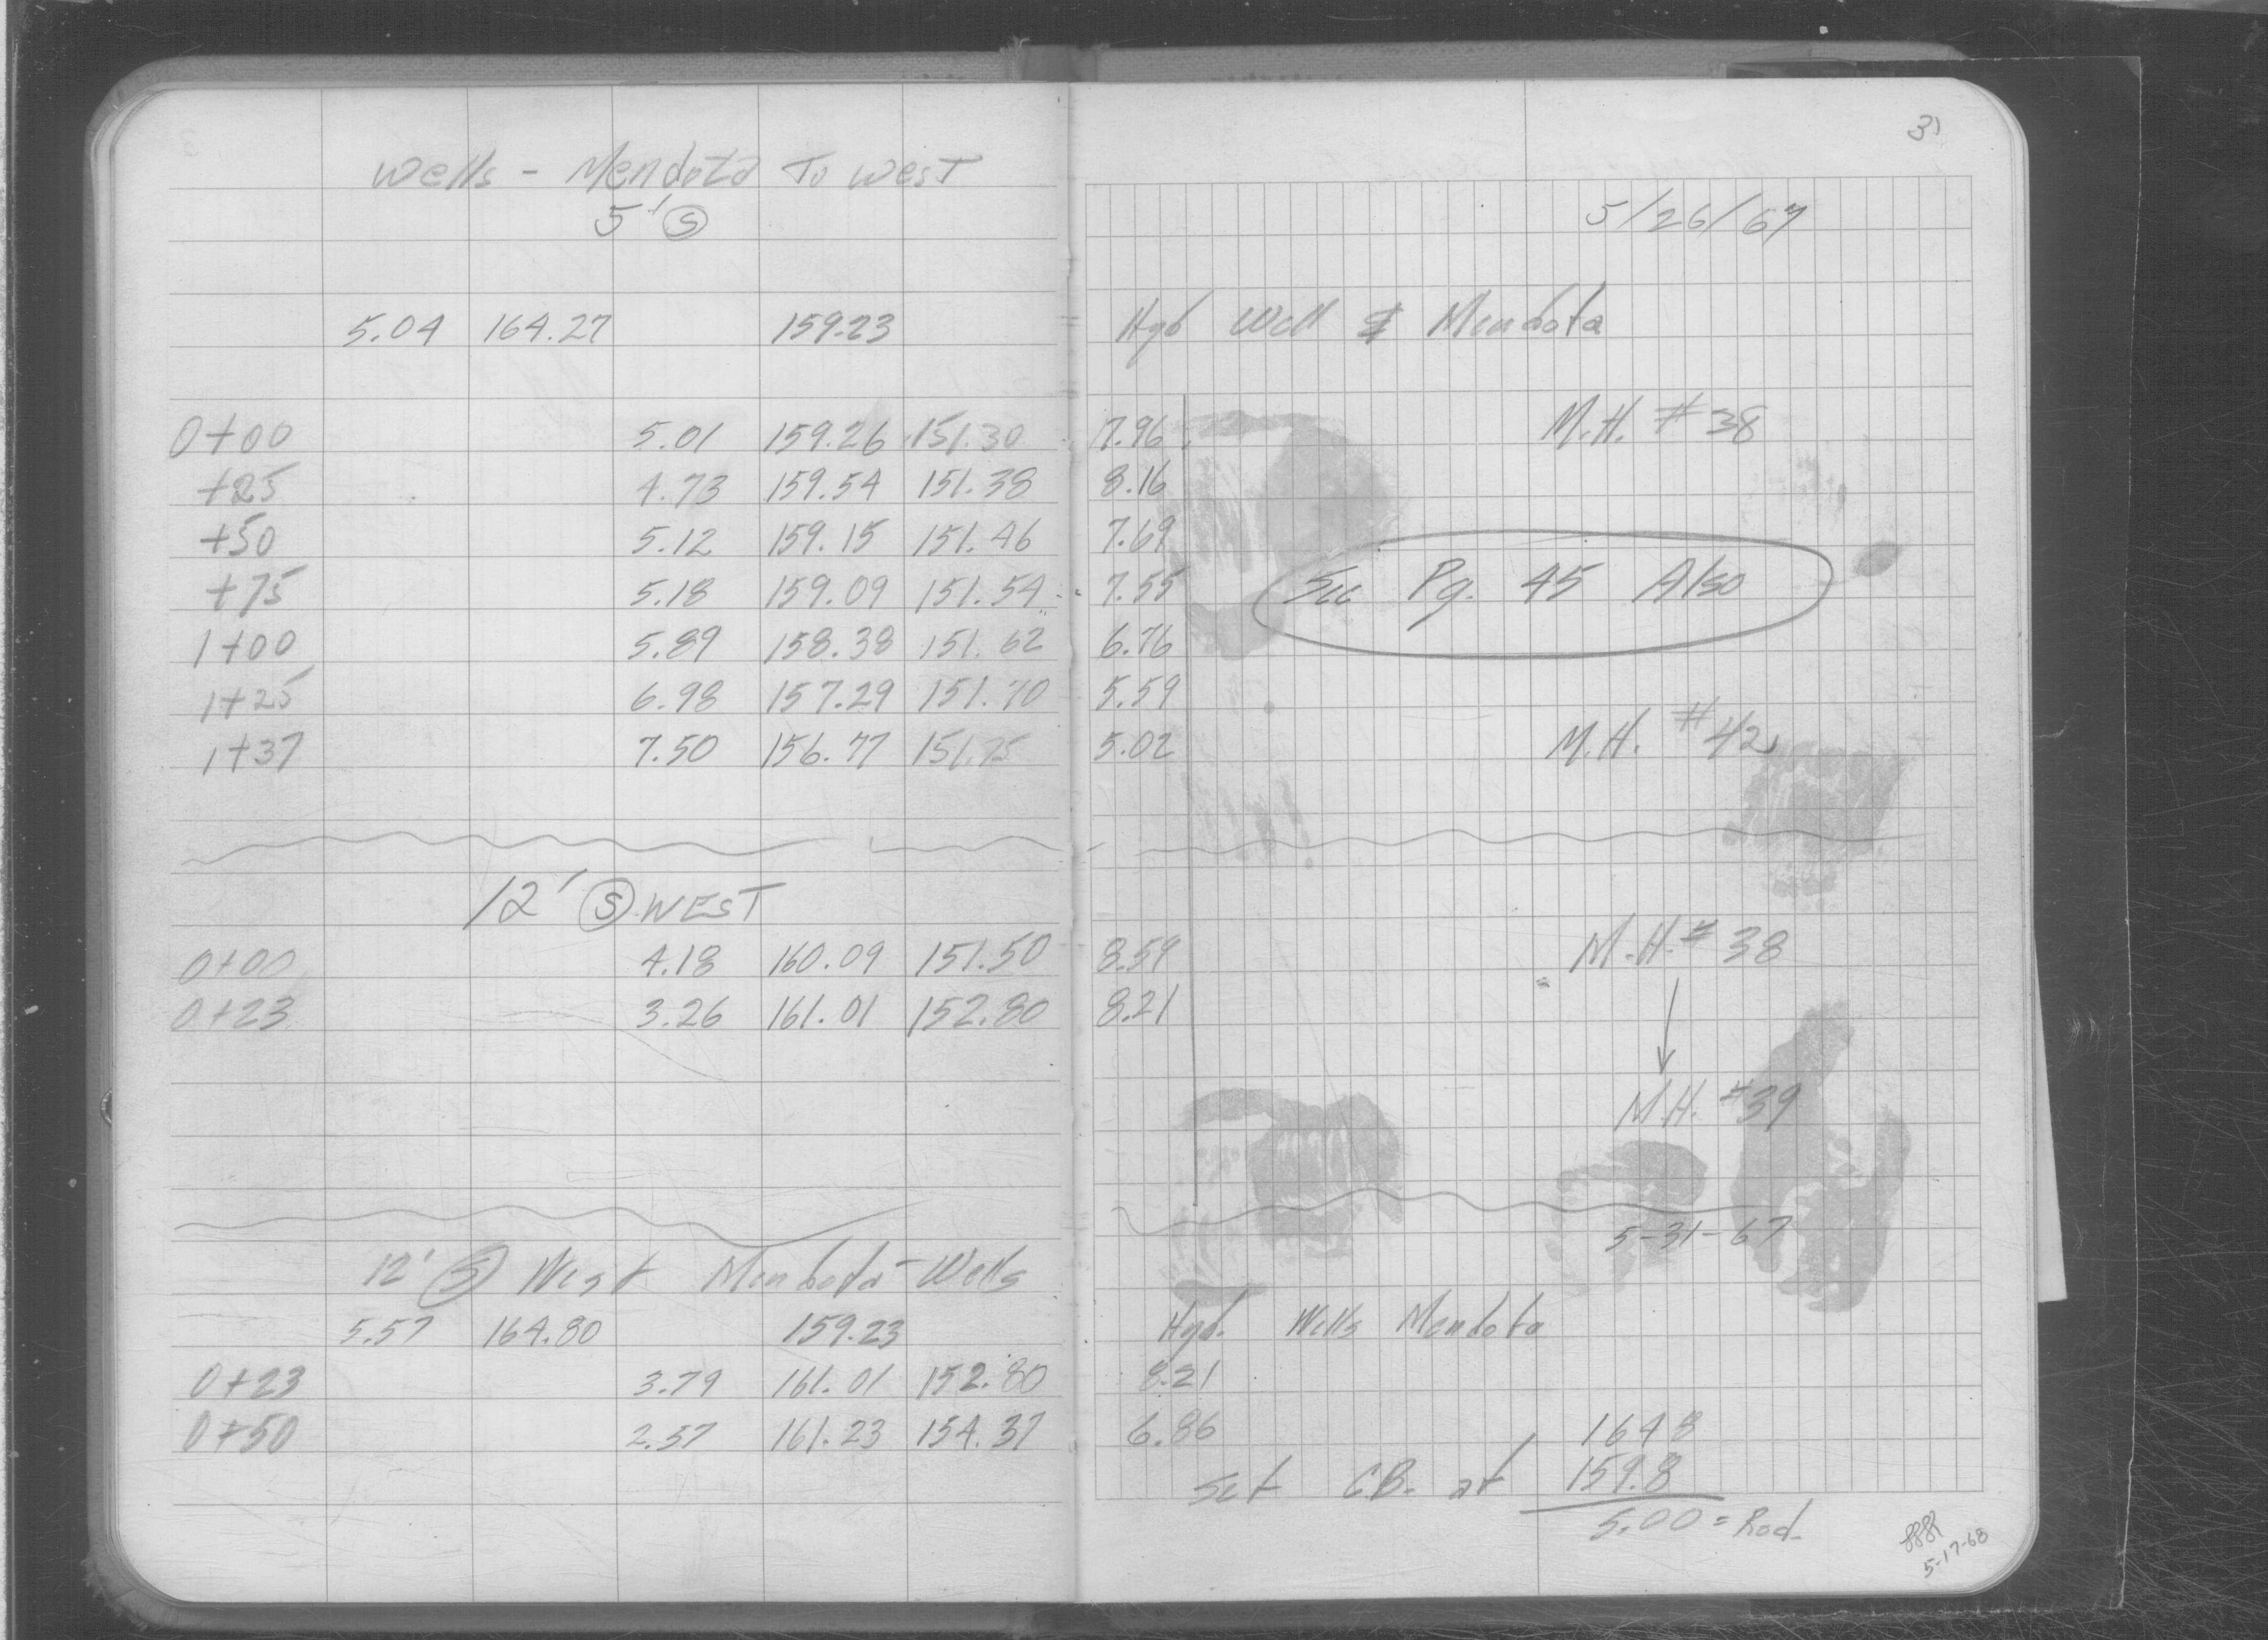 31
Wells - Mendota To west
5' S
5/26/67
5.04 164.27 159.23 Hyd Well & Mendota
0+00 5.01 159.26 151.30 7.96 M.H. #38
+25 4.73 159.54 151.38 8.16
+50 5.12 159.15 151.46 7.69
+75 5.18 159.09 151.54 7.55 See Pg. 45 Also
1+00 5.89 158.38 151.62 6.76
1+25 6.98 157.29 151.70 5.59
1+37 7.50 156.77 151.75 5.02 M.H. #42
12' S WEST
0+00 4.18 160.09 151.50 8.59 M.H. # 38
0+23 3.26 161.01 152.80 8.21
M.H. #39
5-31-67
12' S West Mendota - Wells
5.57 164.80 159.23 Hyd. Wells Mendota
0+23 3.79 161.01 152.80 8.21
0+50 2.57 161.23 154.37 6.86 164 8
Set CB. at 159.8
5.00 = Rod
5-17-68